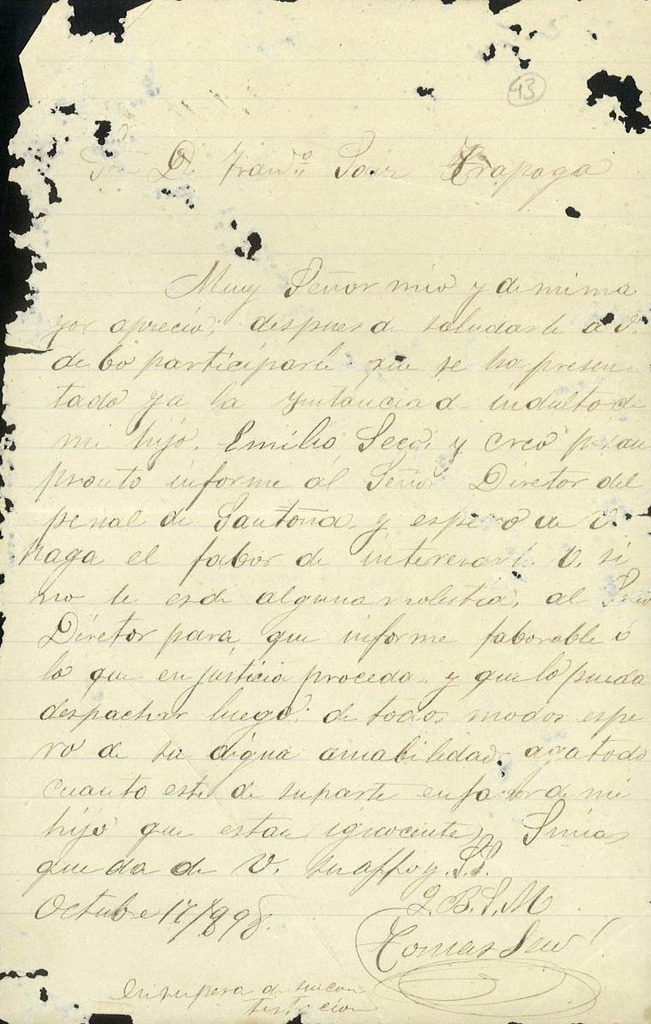 43
Sr D. Franco Sainz Trapaga
Muy Señor mio y de mi ma
yor aprecio; despues de saludarle a V.
debo participarle que se ha presen
tado ya la ynstancia d indulto de
mi hijo, Emilio Seco, y creo pidan
pronto informe al Señor Diretor del
penal de Santoña y espero de V.
haga el fabor de interesarle V. si
no le es de alguna molestia, al Señor
Diretor para que informe faborable ó
lo que en justicia proceda y que lo pueda
despachar luego; de todos modos espe
ro de su digna amabilidad, aga todo
cuanto esté de su parte en favor de mi
hijo que es tan ignocente,
queda de V. su affo y S.S.
Q.B.S.M
Octubre 17/898.
Tomas Seco
en espera de su con
testacion